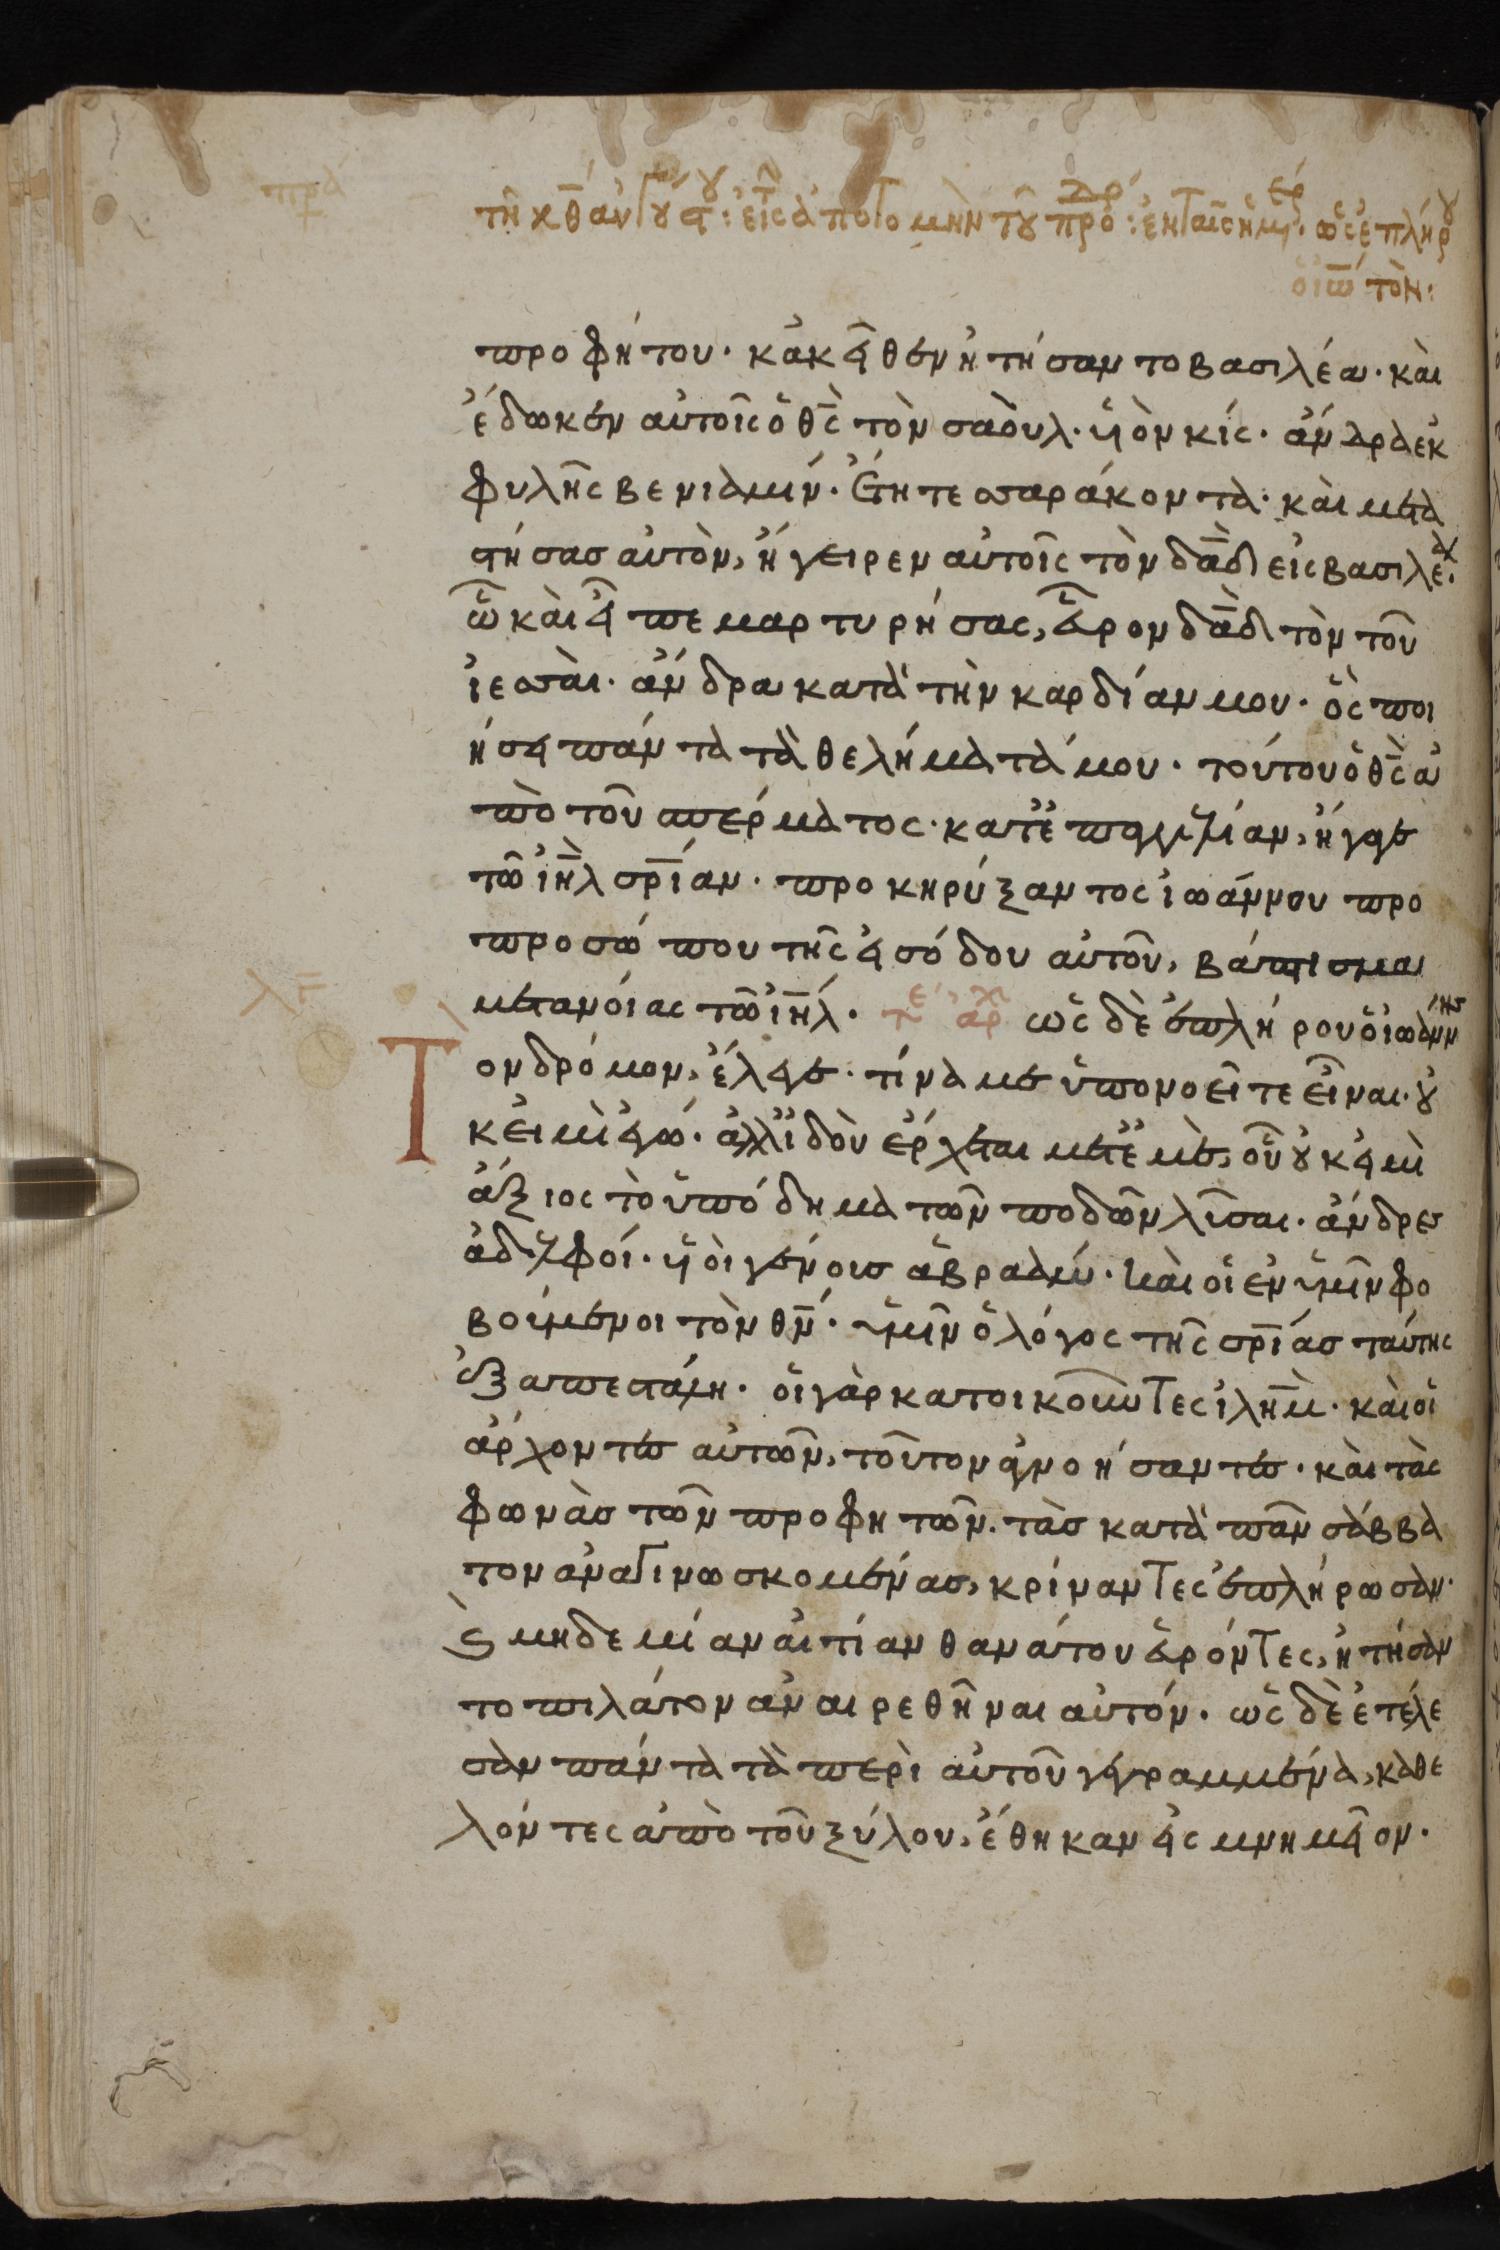 τῆ κθ αὐγούστ: εἰς ἀποτομὴν τοῦ προ: ἐν ταῖς ἡμερ. ὡς ἐπλήρου
ὁ ἰω τὸν:
προφήτου· κἀκεῖθεν ἠτήσαν το βασιλέα· καὶ
ἔδωκεν αὐτοῖς ὁ θς τὸν σαοὺλ· ὑὸν κίς· ἄνδρα ἐκ
φυλῆς βενιαμίν· ἔτη τεσσαράκοντα· καὶ μετα
στήσας αὐτὸν, ἤγειρεν αὐτοῖς τὸν δαδ εἰς βασιλέα·
ὧ καὶ εἶπε μαρτυρήσας, εὗρον δαδ τὸν τοῦ
ἰεσσαὶ· ἄνδρα κατὰ τὴν καρδίαν μου· ὃς ποι
ήσει πάντα τὰ θελήματά μου· τούτου ὁ θς ἀ
πὸ τοῦ σπέρματος· κατ' ἐπαγγελίαν, ἤγαγε
τῶ ἰηλ σριαν· προκηρύξαντος ἰωάννου προ
προσώπου τῆς εἰσόδου αὐτοῦ, βάπτισμα
μετανοίας τῶ ἰηλ· τε αρχ ὡς δὲ ἐπλήρου ὁ ἰωάννης
Τον δρόμον, ἔλεγε· τίνα με ὑπονοεῖτε εἶναι· οὐ
κ εἰμὶ ἐγώ· ἀλλ' ἰδοὺ ἔρχεται μετ' ἐμὲ, οὗ οὐκ εἰμὶ
ἄξιος τὸ ὑπόδημα τῶν ποδῶν λῦσαι· ἄνδρες
ἀδελφοί· ὑοὶ γένους ἀβραάμ· καὶ οἱ ἐν ὑμῖν φο
βούμενοι τὸν θν· ὑμῖν ὁ λόγος τῆς σριας ταύτης
ἐξαπεστάλη· οἱ γὰρ κατοικοῦντες ἰλημ· καὶ οἱ
ἄρχοντες αὐτῶν, τοῦτον ἀγνοήσαντες· καὶ τὰς
φωνὰς τῶν προφητῶν· τὰς κατὰ πᾶν σάββα
τον ἀναγινωσκομένας, κρίναντες ἐπλήρωσαν·
καὶ μηδεμίαν αἰτίαν θανάτου εὑρόντες, ἠτήσαν
το πιλάτον ἀναιρεθῆναι αὐτόν· ὡς δὲ ἐτέλε
σαν πάντα τὰ περὶ αὐτοῦ γεγραμμένα, καθε
λόντες ἀπὸ τοῦ ξύλου, ἔθηκαν εἰς μνημεῖον·